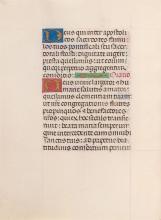 Deus qui inter apostoli
cos sacerdotes famu
los tuos pontificali seu sacer
dotali dignitate
presta quesumus ut eorum
quoque perpetuo aggregentur
consortio Oratio
Deus largitor et hu
mane salutis amator
quesumus clementiam tuam
ut congregationis fratres

qui ex hoc seculo
transierunt beata maria semper vir
gine intercedente cum omnibus
sanctis tuis ad perpetue
beatitudinis consortium